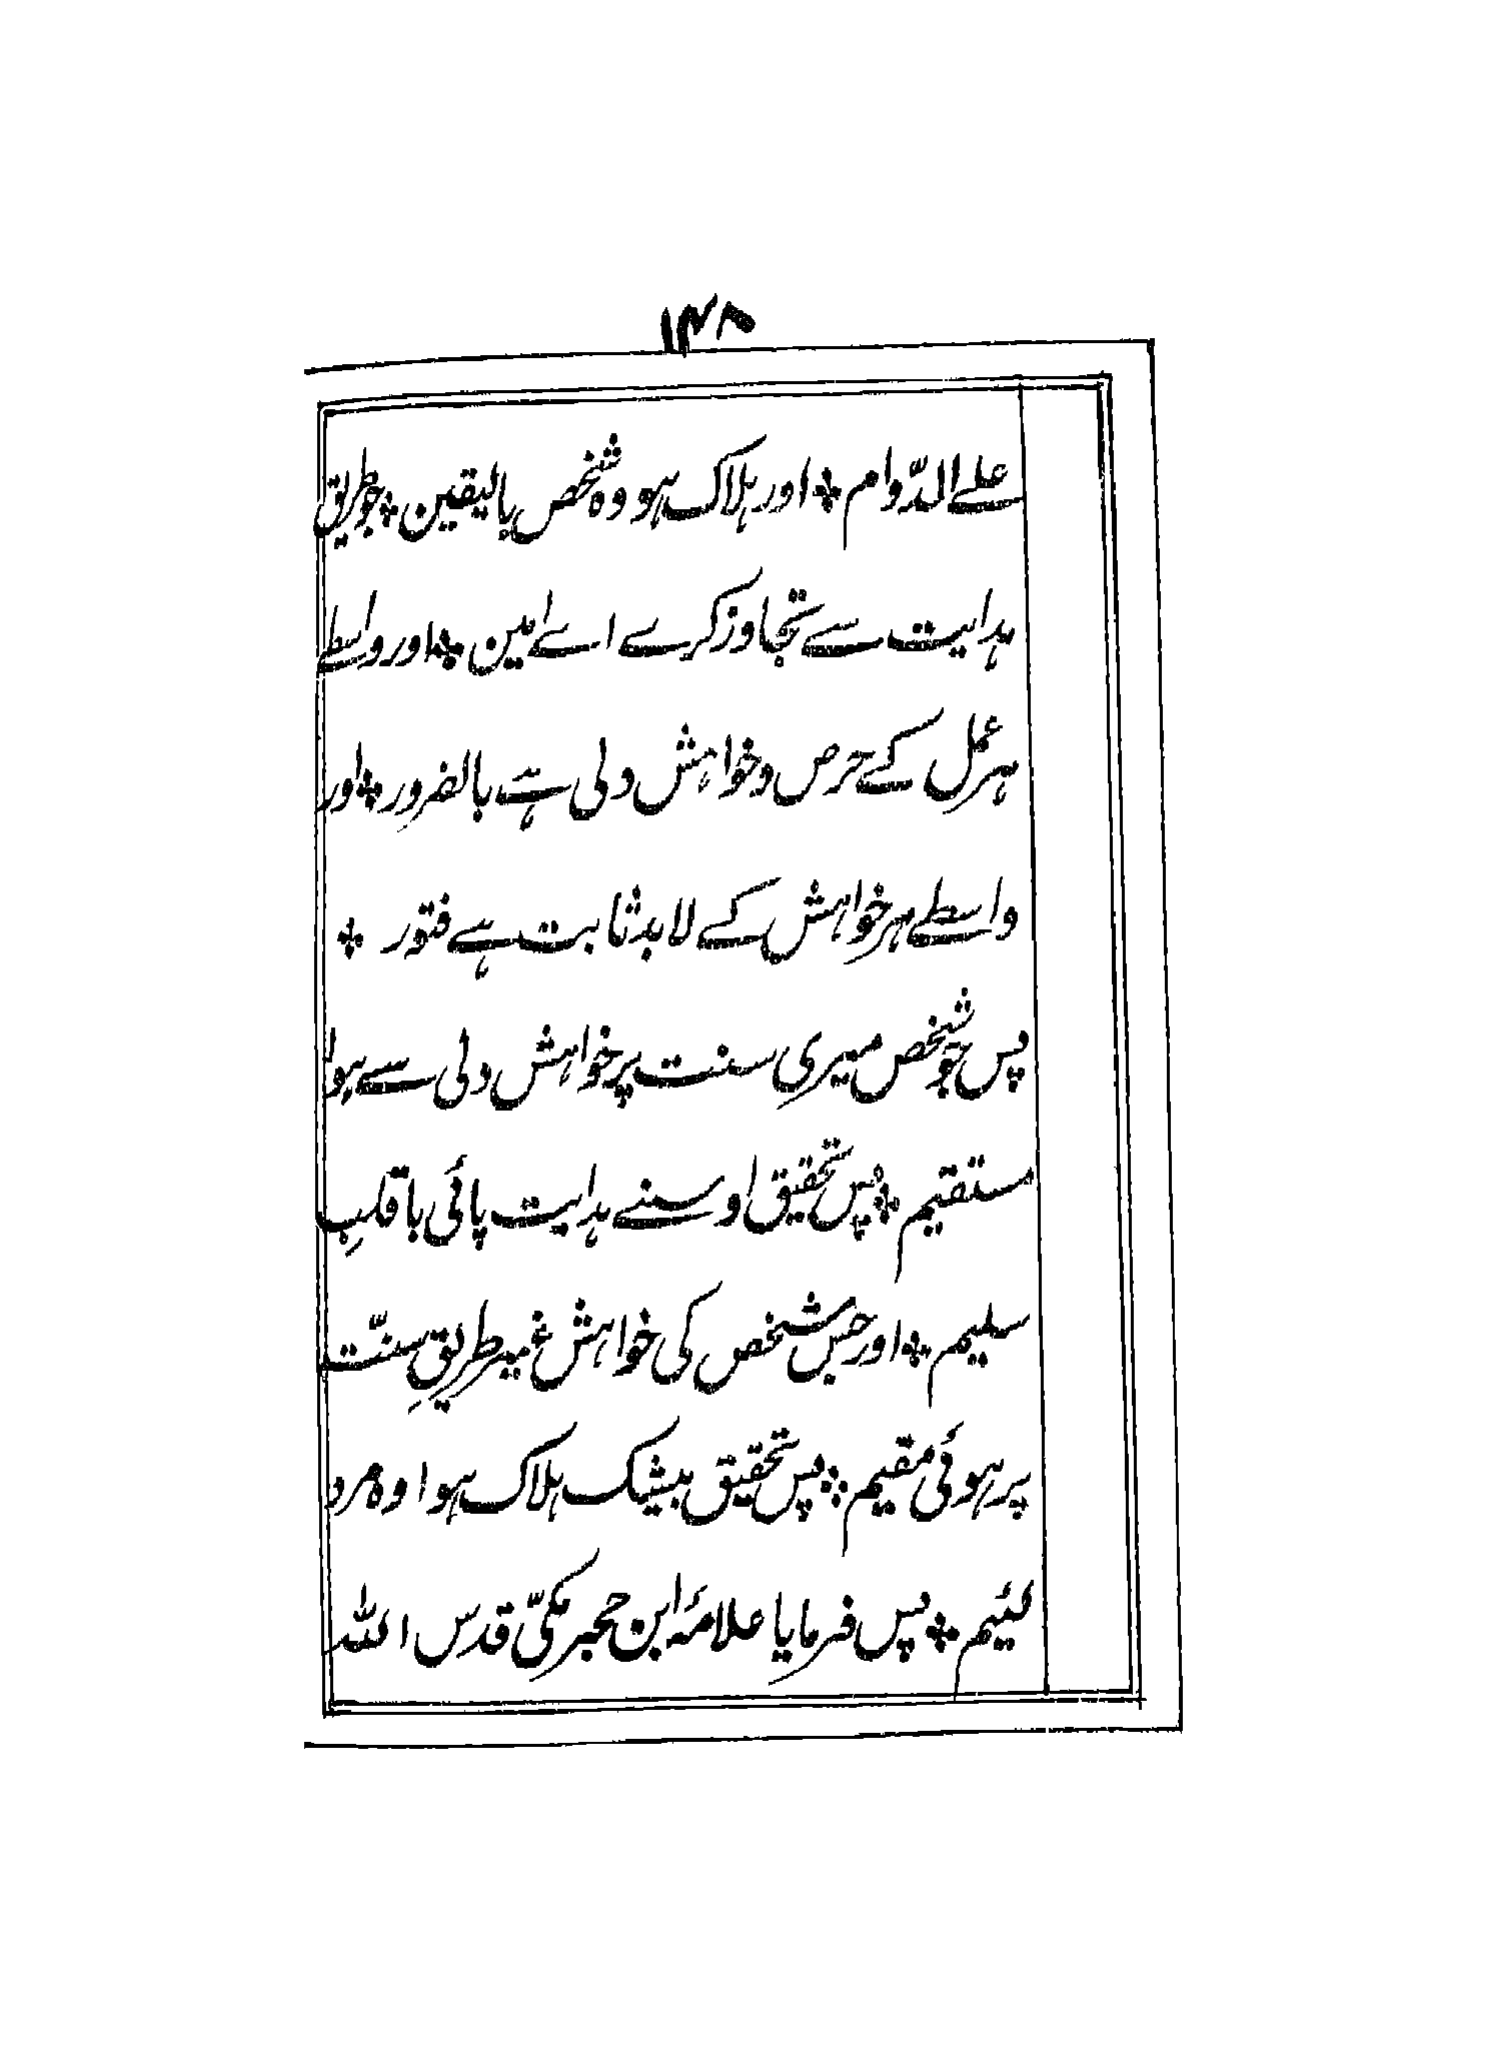 ۱۴۸
علے الدّوام ؞ اور ہلاک ہو وہ شخص بالیقین ؞ جو طریق
ہدایت سے تجاوز کرے اے امین ؞ اور واسطے
ہر عمل کے حرص و خواہش دلی ہے بالضرور ؞ اور
واسطے ہر خواہش کے لابد ثابت ہے فتور ؞
پس جو شخص میری سنت پر خواہش دلی سے ہوا
مستقیم ؞ پس تحقیق اوسنے ہدایت پائی با قلبِ
سلیم ؞ اور جس شخص کی خواہش غیر طریقِ سنّت
پر ہوئی مقیم ؞ پس تحقیق بیشک ہلاک ہوا وہ مرد
لئیم ؞ پس فرمایا علامۂ ابن حجر مکیّ قدس اللہ